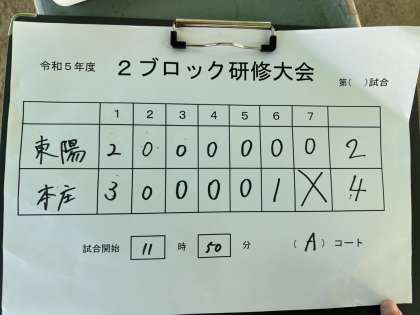 令和5年度 2ブロック研修大会 第( )試合
1 2 3 4 5 6 7
東陽 2 0 0 0 0 0 0 2
本庄 3 0 0 0 0 1 X 4
試合開始 11 時 50 分 (A)コート